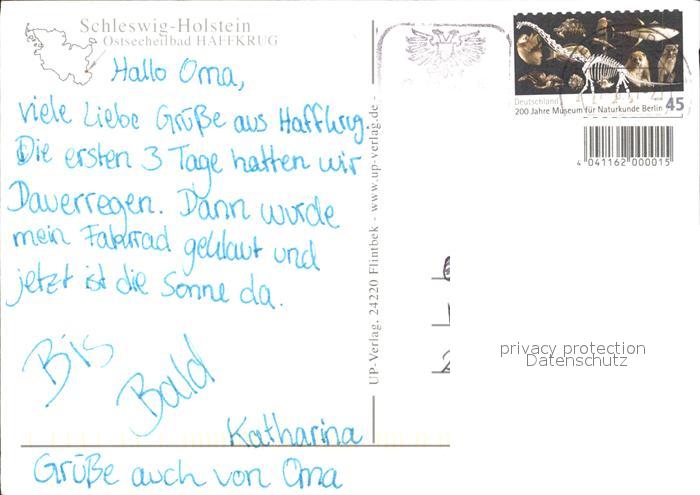 Schleswig-Holstein
Ostseeheilbad HAFFKRUG
Hallo Oma,
viele Liebe Grüße aus Haffkrug.
Die ersten 3 Tage hatten wir
Dauerregen. Dann wurde
mein Fahrrad geklaut und
jetzt ist die Sonne da.
Bis
Bald
Katharina
Grüße auch von Oma
UP-Verlag, 24220 Flintbek - www.up-verlag.de -
Deutschland
200 Jahre Museum für Naturkunde Berlin 45
4 041162 000015
privacy protection
Datenschutz